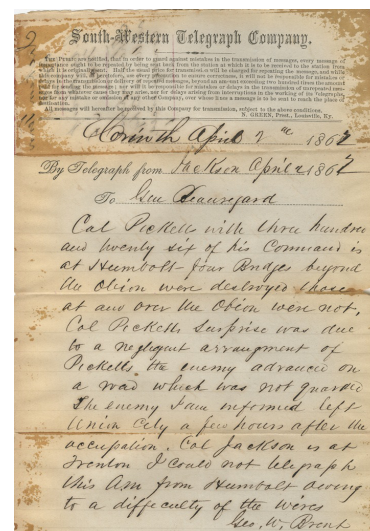 South-Western Telegraph Company.
THE PUBLIC are notified, that in order to guard against mistakes in the transmission of messages, every message of
importance ought to be repeated by being sent back from the station at which it is to be received to the station from
which it is originally sent. Half the usual price for transmission will be charged for repeating the message, and while
this company will, as heretofore, use every precaution to ensure correctness, it will not be responsible for mistakes or
delays in the transmission or delivery of repeated messages, beyond an amount exceeding two hundred times the amount
paid for sending the message; nor will it be responsible for mistakes or delays in the transmission of unrepeated mes-
sages from whatever cause they may arise, nor for delays arising from interruptions in the working of its Telegraphs,
nor for any mistake or omission of any other Company, over whose lines a message is to be sent to reach the place of
destination.
All messages will hereafter be received by this Company for transmission, subject to the above conditions.
N. GREEN, Prest., Louisville, Ky.
Corinth April 2 1862
By Telegraph from Jackson April 2 1862
To Genl Beauregard
Col Picketts with three hundred
and twenty six of his Command is
at Humbolt - four Bridges beyond
the Obion were destroyed those
at and over the Obion were not.
Col Picketts surprise was due
to a negligent arrangment of
Picketts, the enemy advanced on
a road which was not guarded
The enemy I am informed left
Union City a few hours after the
occupation. Col Jackson is at
Trenton I could not telegraph
this Am from Humbolt owing
to a difficulty of the wires
Geo. W. Brent